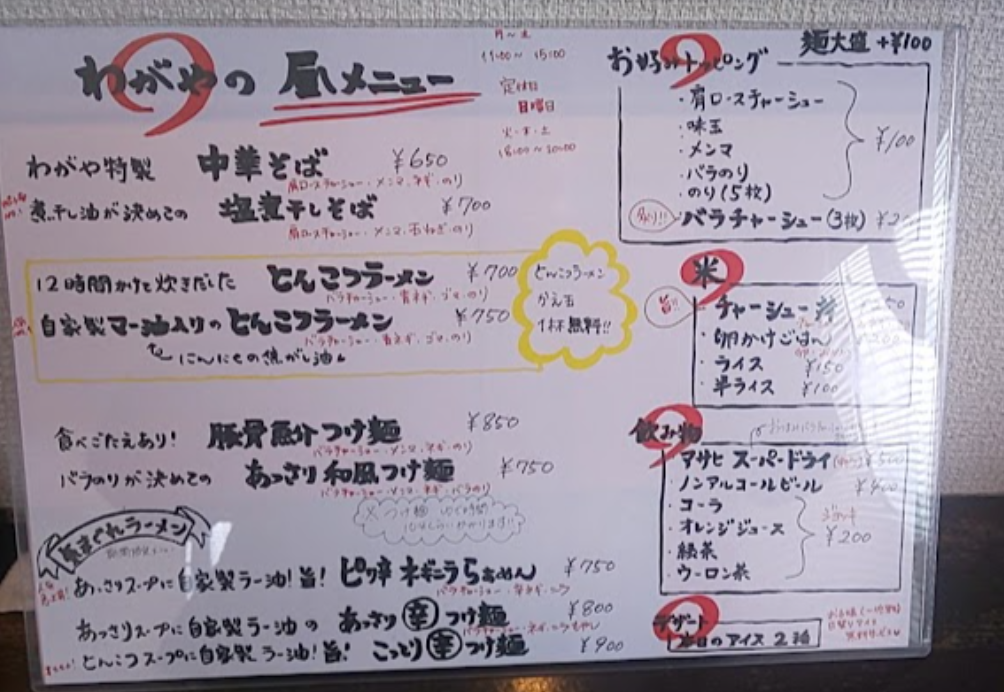 わがやの 昼メニュー
11:00～15:00
定休日
日曜日
18:00～20:00
わがや特製 中華そば ¥650
肩ロースチャーシュー・メンマ・ネギ・のり
煮干し油が決めての 塩煮干しそば ¥700
肩ロースチャーシュー・メンマ・玉ねぎ・のり
12時間かけて炊きだした とんこつラーメン ¥700
バラチャーシュー・青ネギ・ゴマ・のり
自家製マー油入りの とんこつラーメン ¥750
バラチャーシュー・青ネギ・ゴマ・のり
にんにくの焦がし油
とんこつラーメン
かえ玉
1杯無料!!
食べごたえあり! 豚骨魚介つけ麺 ¥850
バラチャーシュー・メンマ・ネギ・のり
バラのりが決めての あっさり和風つけ麺 ¥750
バラチャーシュー・メンマ・ネギ・バラのり
気まぐれラーメン
あっさりスープに自家製ラー油!旨! ピリ辛 ネギニラらぁめん ¥750
あっさりスープに自家製ラー油の あっさり辛つけ麺 ¥800
とんこつスープに自家製ラー油!旨! こってり辛つけ麺 ¥900
麺大盛 +¥100
お好みトッピング
・肩ロースチャーシュー
・味玉
・メンマ
・バラのり
・のり(5枚)
¥100
バラチャーシュー(3枚)
米
旨!!
・チャーシュー丼
・卵かけごはん
・ライス ¥150
・半ライス ¥100
飲み物
・アサヒ スーパードライ
・ノンアルコールビール
・コーラ
・オレンジジュース
・緑茶
・ウーロン茶
¥200
デザート
本日のアイス 2泊